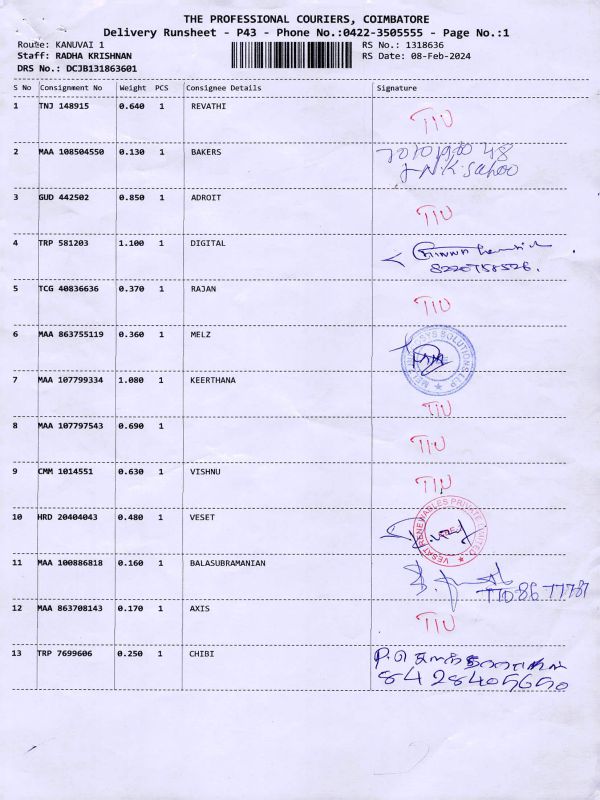 THE PROFESSIONAL COURIERS, COIMBATORE
Delivery Runsheet - P43 - Phone No.:0422-3505555 - Page No.:1
Route: KANUVAI 1
RS No.: 1318636
Staff: RADHA KRISHNAN
RS Date: 08-Feb-2024
DRS No.: DCJB131863601
S No Consignment No Weight PCS Consignee Details Signature
1 TNJ 148915 0.640 1 REVATHI
2 MAA 108504550 0.130 1 BAKERS
J.N.K.Sahoo
3 GUD 442502 0.850 1 ADROIT
4 TRP 581203 1.100 1 DIGITAL
8220758526.
5 TCG 40836636 0.370 1 RAJAN
6 MAA 863755119 0.360 1 MELZ
7 MAA 107799334 1.080 1 KEERTHANA
8 MAA 107797543 0.690 1
9 CMM 1014551 0.630 1 VISHNU
10 HRD 20404043 0.480 1 VESET
VESAT RENEWABLES PRIVATE LIMITED
11 MAA 100886818 0.160 1 BALASUBRAMANIAN
12 MAA 863708143 0.170 1 AXIS
13 TRP 7699606 0.250 1 CHIBI
8428405650